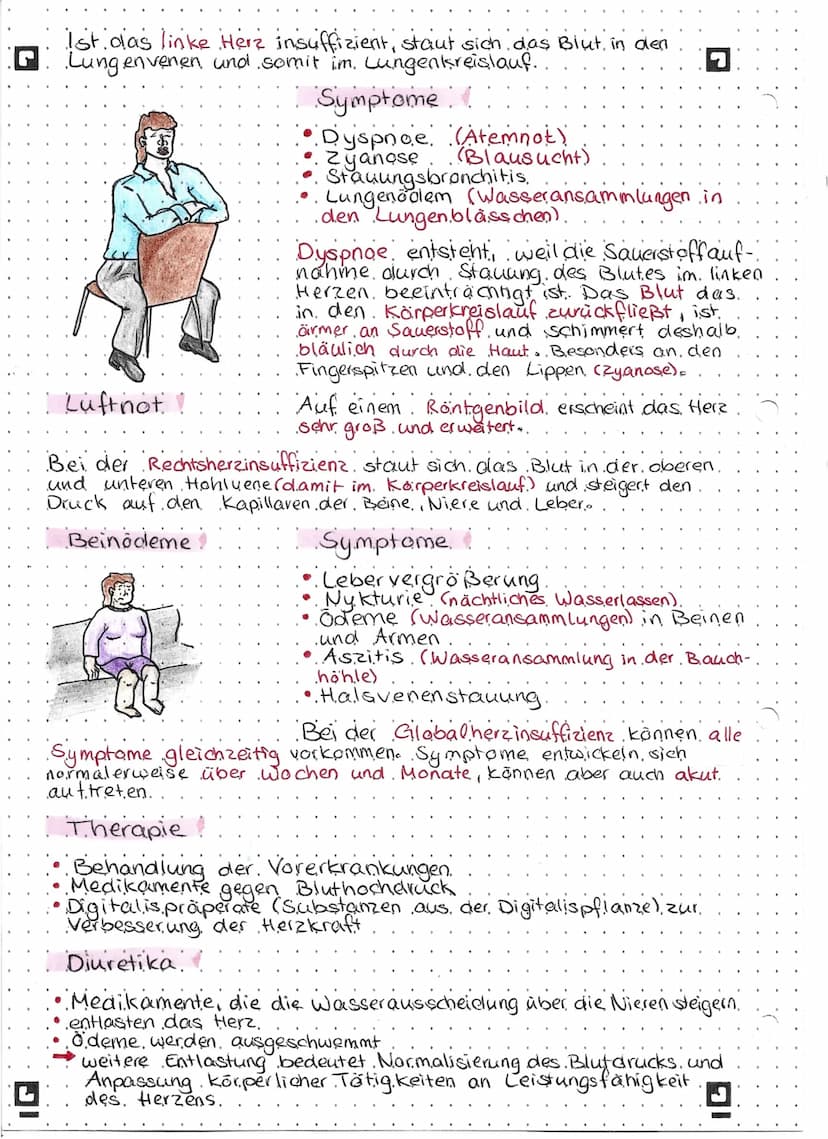 Ist das linke Herz insuffizient, staut sich das Blut in den
Lungenvenen und somit im Lungenkreislauf.
Symptome
• Dyspnoe (Atemnot)
• Zyanose (Blausucht)
• Stauungsbronchitis
• Lungenödem (Wasseransammlungen in
den Lungenblässchen)
Dyspnoe entsteht, weil die Sauerstoffauf-
nahme durch Stauung des Blutes im linken
Herzen beeinträchtigt ist. Das Blut das
in den Körperkreislauf zurückfließt, ist
ärmer an Sauerstoff und schimmert deshalb
bläulich durch die Haut. Besonders an den
Fingerspitzen und den Lippen (Zyanose).
Luftnot
Auf einem Röntgenbild erscheint das Herz
sehr groß und erweitert.
Bei der Rechtsherzinsuffizienz staut sich das Blut in der oberen
und unteren Hohlvene (damit im Körperkreislauf) und steigert den
Druck auf den Kapillaren der Beine, Niere und Leber.
Beinödeme
Symptome
• Lebervergrößerung
• Nykturie (nächtliches Wasserlassen)
• Ödeme (Wasseransammlungen) in Beinen
und Armen
• Aszitis (Wasseransammlung in der Bauch-
höhle)
• Halsvenenstauung
Bei der Globalherzinsuffizienz können alle
Symptome gleichzeitig vorkommen. Symptome entwickeln sich
normalerweise über Wochen und Monate, können aber auch akut
auftreten.
Therapie
• Behandlung der Vorerkrankungen
• Medikamente gegen Bluthochdruck
• Digitalispräperate (Substanzen aus der Digitalispflanze) zur
Verbesserung der Herzkraft
Diuretika
• Medikamente, die die Wasserausscheidung über die Nieren steigern
• entlasten das Herz
• Ödeme werden ausgeschwemmt
→ weitere Entlastung bedeutet Normalisierung des Blutdrucks und
Anpassung körperlicher Tätigkeiten an Leistungsfähigkeit
des Herzens.